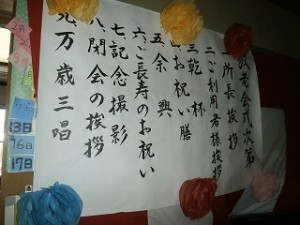 敬老会式次第
一所長挨拶
二ご利用者様挨拶
三乾杯
四お祝い膳
五余興
六ご長寿のお祝い
七記念撮影
八閉会の挨拶
九万歳三唱
13日
16日
17日